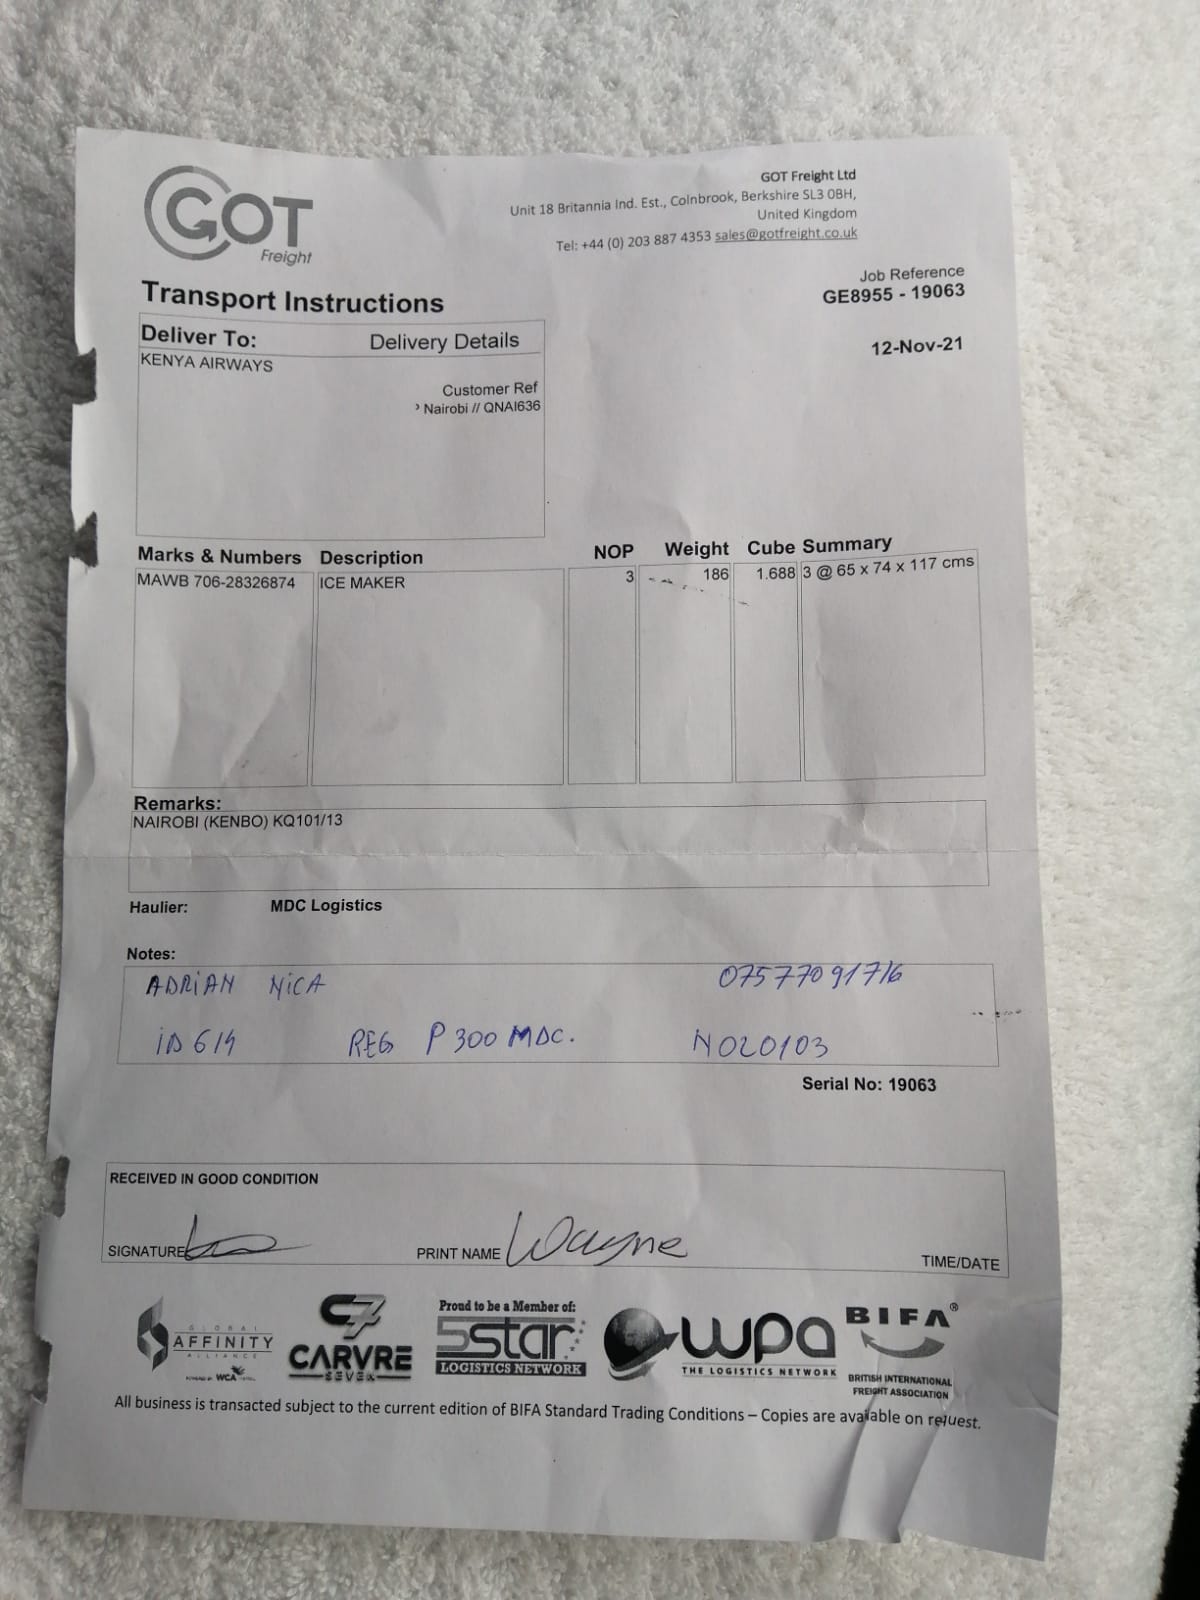 GOT
Freight
GOT Freight Ltd
Unit 18 Britannia Ind. Est., Colnbrook, Berkshire SL3 0BH,
United Kingdom
Tel: +44 (0) 203 887 4353 sales@gotfreight.co.uk
Job Reference
GE8955 - 19063
Transport Instructions
12-Nov-21
Deliver To: Delivery Details
KENYA AIRWAYS
Customer Ref
Nairobi // QNAI636
Marks & Numbers Description NOP Weight Cube Summary
MAWB 706-28326874 ICE MAKER 3 186 1.688 3 @ 65 x 74 x 117 cms
Remarks:
NAIROBI (KENBO) KQ101/13
Haulier: MDC Logistics
Notes:
ADRIAN NICA 07577091716
ID 614 REG P300 MDC. N020103
Serial No: 19063
RECEIVED IN GOOD CONDITION
SIGNATURE PRINT NAME Wayne TIME/DATE
GLOBAL
AFFINITY
ALLIANCE
POWERED BY WCA
C7
CARVRE
SEVEN
Proud to be a Member of:
5star
LOGISTICS NETWORK
wpa
THE LOGISTICS NETWORK
BIFA®
BRITISH INTERNATIONAL
FREIGHT ASSOCIATION
All business is transacted subject to the current edition of BIFA Standard Trading Conditions – Copies are available on request.